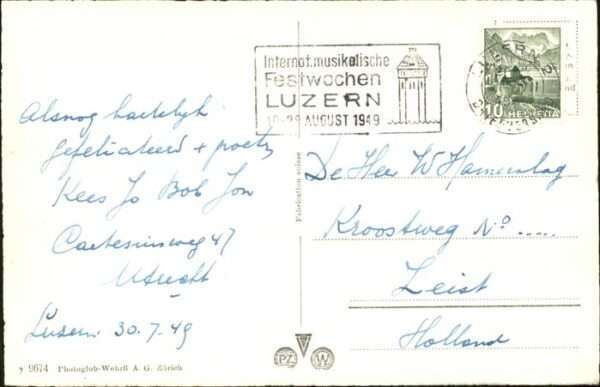 Alsnog hartelijk
gefeliciteerd + poetz
Kees Jo Bob Jon
Cartesiusweg 47
Utrecht
Luzern. 30.7.49
7 9674 Photoglob-Wehrli A. G. Zürich
Fabrication suisse
Internat.musikalische
Festwochen
LUZERN
AUGUST 1949
LUZERN
10 HELVETIA
De Heer W Hamerslag
Kroostweg No .....
Zeist
Holland
PZ W